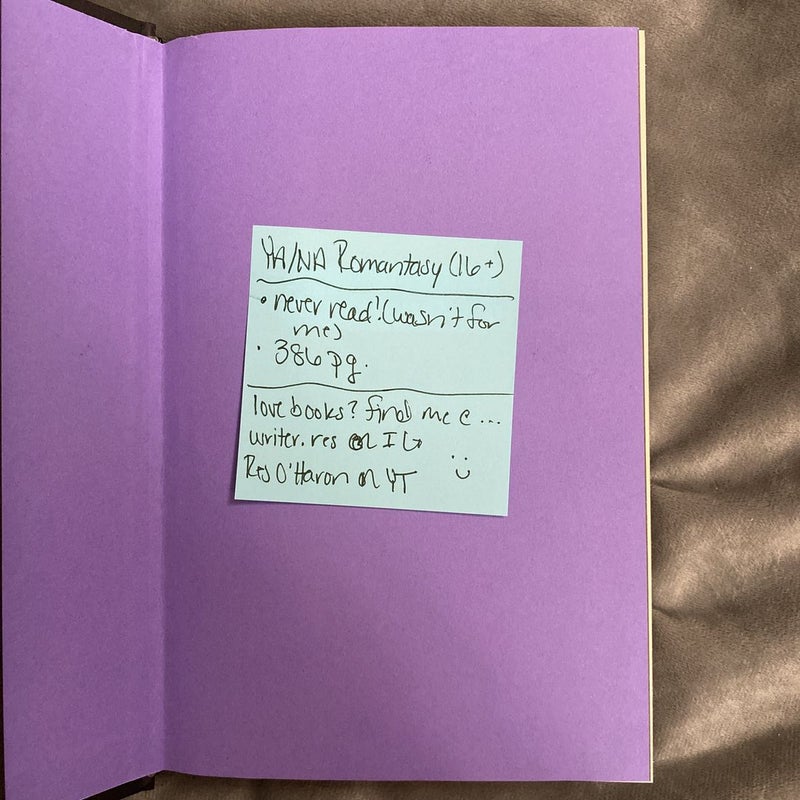 YA/NA Romantasy (16+)
• never read! (wasn't for
me)
• 386 pg.
love books? find me @ ...
writer.res on IG
Res O'Haron on YT :)